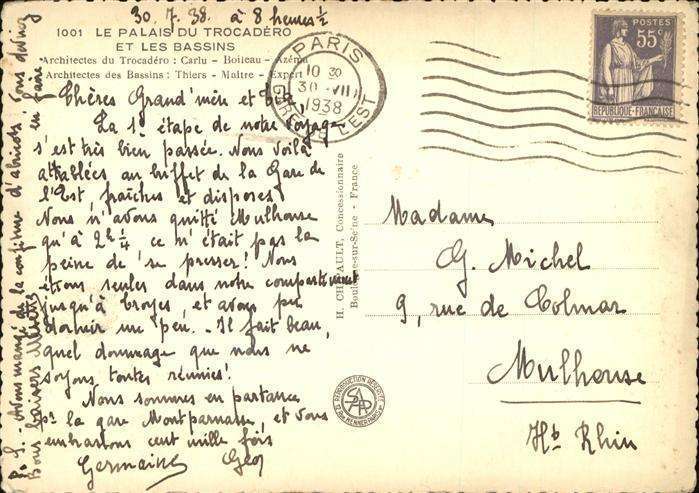 30.7.38. à 8 heures ½
1001 LE PALAIS DU TROCADÉRO
ET LES BASSINS
Architectes du Trocadéro : Carlu - Boileau - Azéma
Architectes des Bassins : Thiers - Maître - Expert
Chères Grand'mère et
La 1e étape de notre voyage
s'est très bien passée. Nous voilà
attablées au buffet de la Gare de
l'Est, fraîches et disposes
Nous n'avons quitté Mulhouse
qu'à 2h ¼ ce n'était pas la
peine de se presser! Nous
étions seules dans notre compartiment
jusqu'à Troyes, et avons pu
dormir un peu. - Il fait beau,
quel dommage que nous ne
soyons toutes réunies!
Nous sommes en partance
pr la gare Montparnasse, et vous
embrassons cent mille fois
Germaine Geo
P.S. - Avons mangé de la confiture d'abricots! Vous devinez
Bons baisers
en faire
PARIS
10 30
30 - VII
1938
GARE DE L'EST
POSTES
55c
REPUBLIQUE-FRANÇAISE
H. CHIPAULT, Concessionnaire
Boulogne-sur-Seine - France
REPRODUCTION RÉSERVÉE
SAPP
Madame
G. Michel
9, rue de Colmar
Mulhouse
Ht Rhin